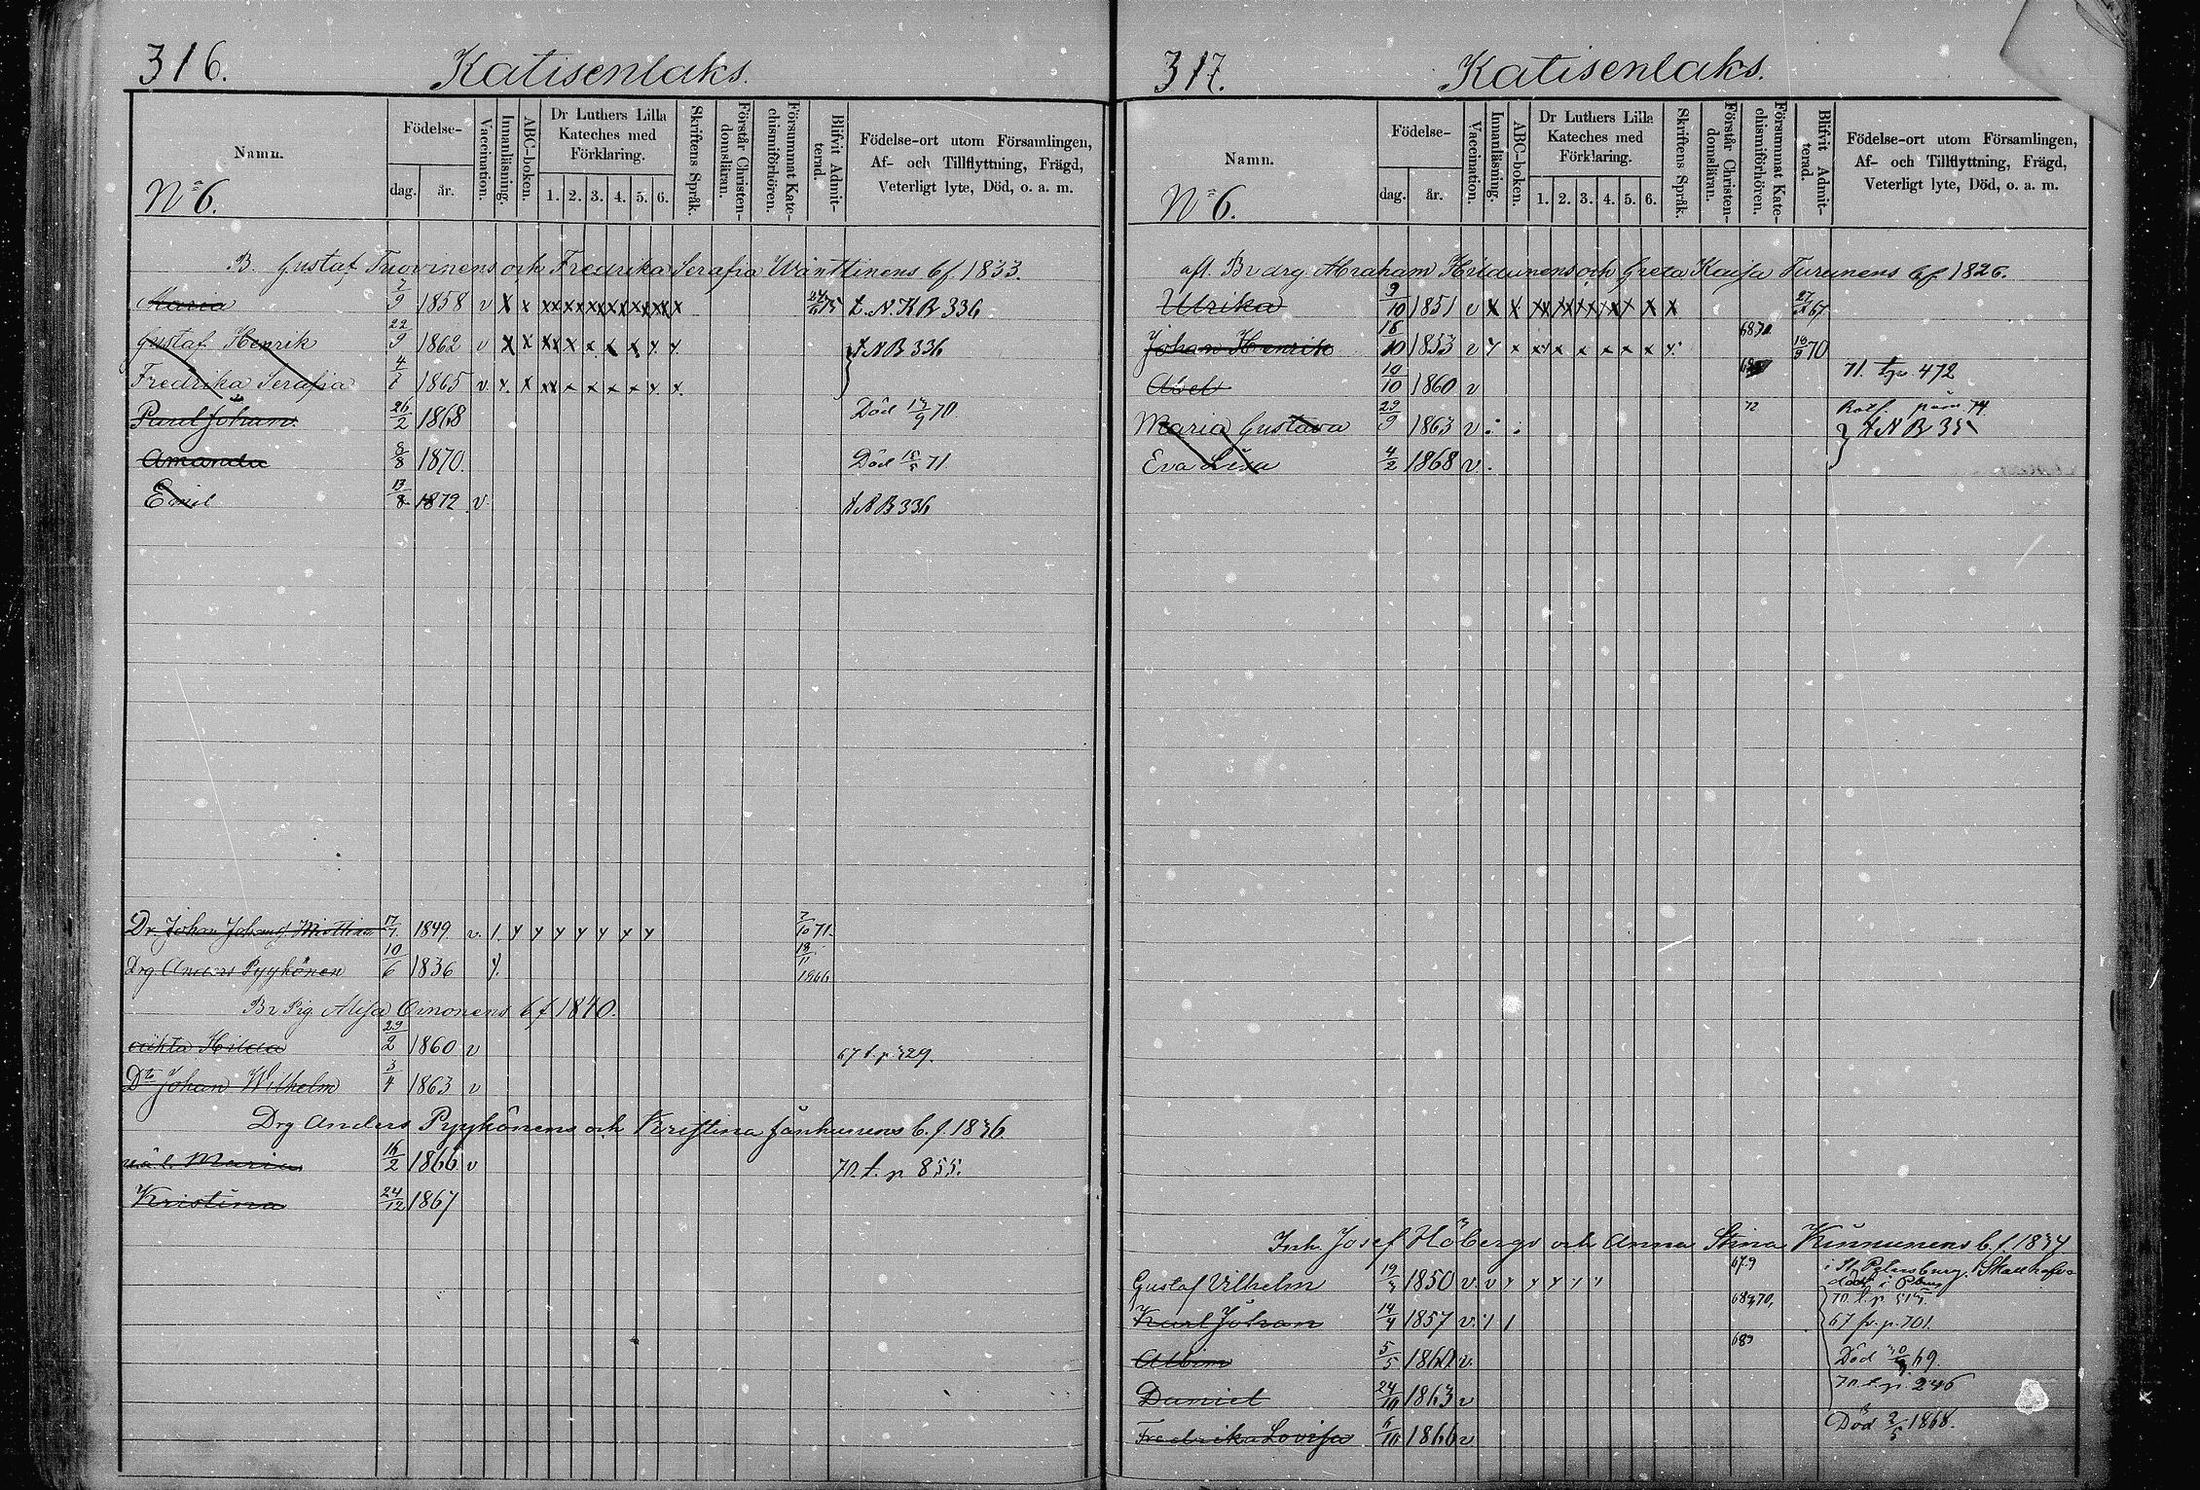 316.
Katisenlaks.
Namn.
Födelse-
dag.
år.
Vaccination.
Innanläsning.
ABC-boken.
Dr Luthers Lilla
Kateches med
Förklaring.
1. 2. 3. 4. 5. 6.
Skriftens Språk.
Förstår Christen-
domsläran.
Försummat Kate-
chismiförhören.
Blifvit Admit-
terad.
Födelse-ort utom Församlingen,
Af- och Tillflyttning, Frägd,
Veterligt lyte, Död, o. a. m.
No 6.
B. Gustaf Tuovinens och Fredrika Serafia Wänttinens b f. 1833.
Maria 1858 v x x xx xx xx xx xx xx x t. N. K B 336
Gustaf Henrik 22/9 1862 v x x xx x x x x x x t N B 336
Fredrika Serafia 1865 v x x xx x x x x x x
Paul Johan 26/2 1868 Död 70
Amanda 8/8 1870. Död 71
Emil 13/8 1872 v t N B 336
Dr. Johan 17/7 1849 v. 7/10 71.
Drg Anders Pyykönen 10/6 1836 18/11 1866
Br Pig. Oinonens b f 1840.
oäkta Hilda 29/2 1860 v 67 t. p 329.
Dto Johan Wilhelm 3/4 1863 v
Drg Anders Pyykönens och Kristina Jänhunens b. f. 1836
Maria 16/2 1866 v 70 t. p 855.
Kristina 24/12 1867
317.
Katisenlaks.
Namn.
Födelse-
dag.
år.
Vaccination.
Innanläsning.
ABC-boken.
Dr Luthers Lilla
Kateches med
Förklaring.
1. 2. 3. 4. 5. 6.
Skriftens Språk.
Förstår Christen-
domsläran.
Försummat Kate-
chismiförhören.
Blifvit Admit-
terad.
Födelse-ort utom Församlingen,
Af- och Tillflyttning, Frägd,
Veterligt lyte, Död, o. a. m.
No 6.
afl. Br drg Abraham och Greta Kaisa Turunens b f 1826.
Ulrika 9/10 1851 v x x xx xx xx xx x x x 67
Johan Henrik 16/10 1853 v x x x x x x x 68 70 18/9 70
Abel 14/10 1860 v 71 472
Maria Gustava 29/9 1863 v 72
Eva Lisa 4/2 1868 v.
Inh. Josef Höbergs och Anna Stina Kinnunens b. f. 1834
Gustaf Vilhelm 1850 v. i St. Petersburg.
Karl Johan 14/4 1857 v. 67 fr. p. 701.
Albin 5/5 1860 v. Död 69.
Daniel 24/10 1863 v 70 t. p. 246
Fredrika Lovisa 6/10 1866 v Död 1868.